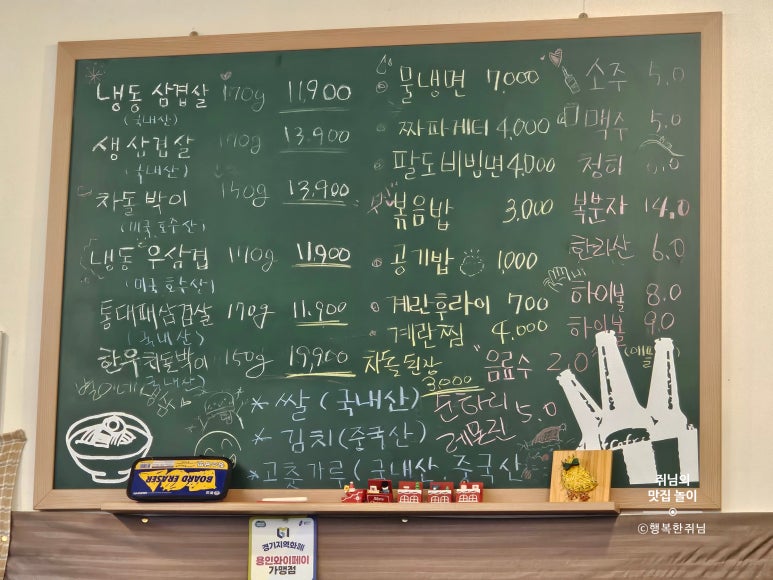 냉동 삼겹살 170g 11,900
(국내산)
생 삼겹살 13,900
(국내산)
차돌박이 150g 13,900
(미국, 호주산)
냉동 우삼겹 170g 11,900
(미국 호주산)
통대패삼겹살 170g 11,900
(국내산)
한우차돌박이 150g 19,900
(국내산)
물냉면 7,000
짜파게티 4,000
팔도비빔면 4,000
볶음밥 3,000
공기밥 1,000
계란후라이 700
계란찜 4,000
차돌된장 3,000
소주 5.0
맥주 5.0
청하
복분자 14.0
한라산 6.0
하이볼 8.0
하이볼 9.0
음료수 2.0
순하리 레몬진 5.0
* 쌀 (국내산)
* 김치 (중국산)
* 고춧가루 (국내산, 중국산
BOARD ERASER
Cafe
경기지역화폐
용인와이페이
가맹점
쥐님의
맛집 놀이
©행복한쥐님